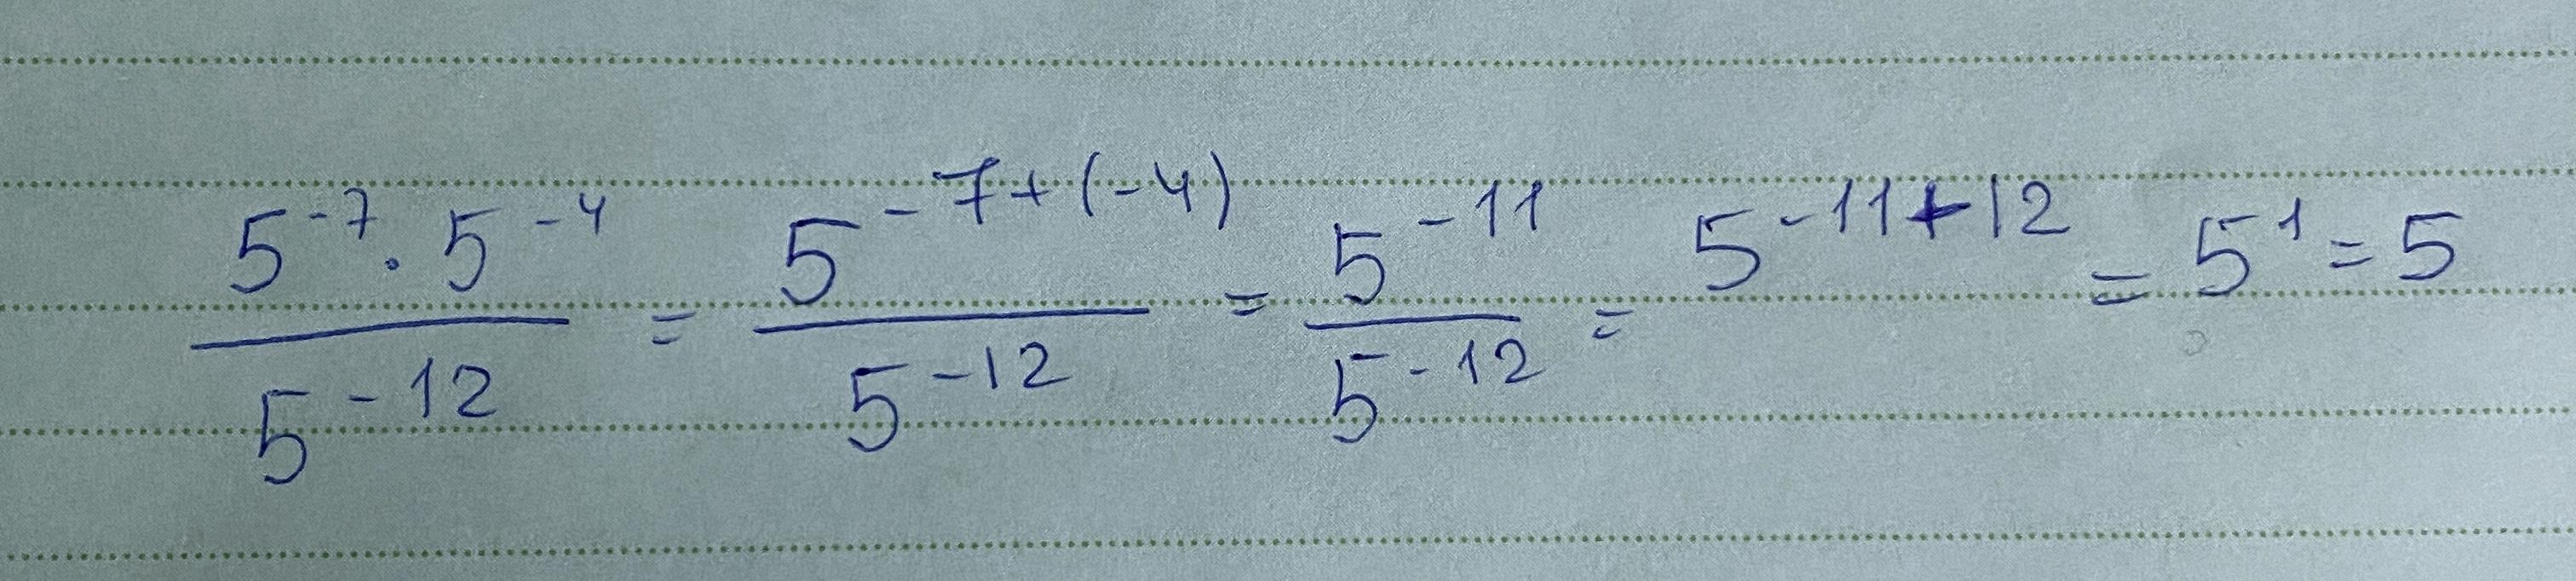 \frac{5^{-7} \cdot 5^{-4}}{5^{-12}} = \frac{5^{-7+(-4)}}{5^{-12}} = \frac{5^{-11}}{5^{-12}} = 5^{-11+12} = 5^1 = 5